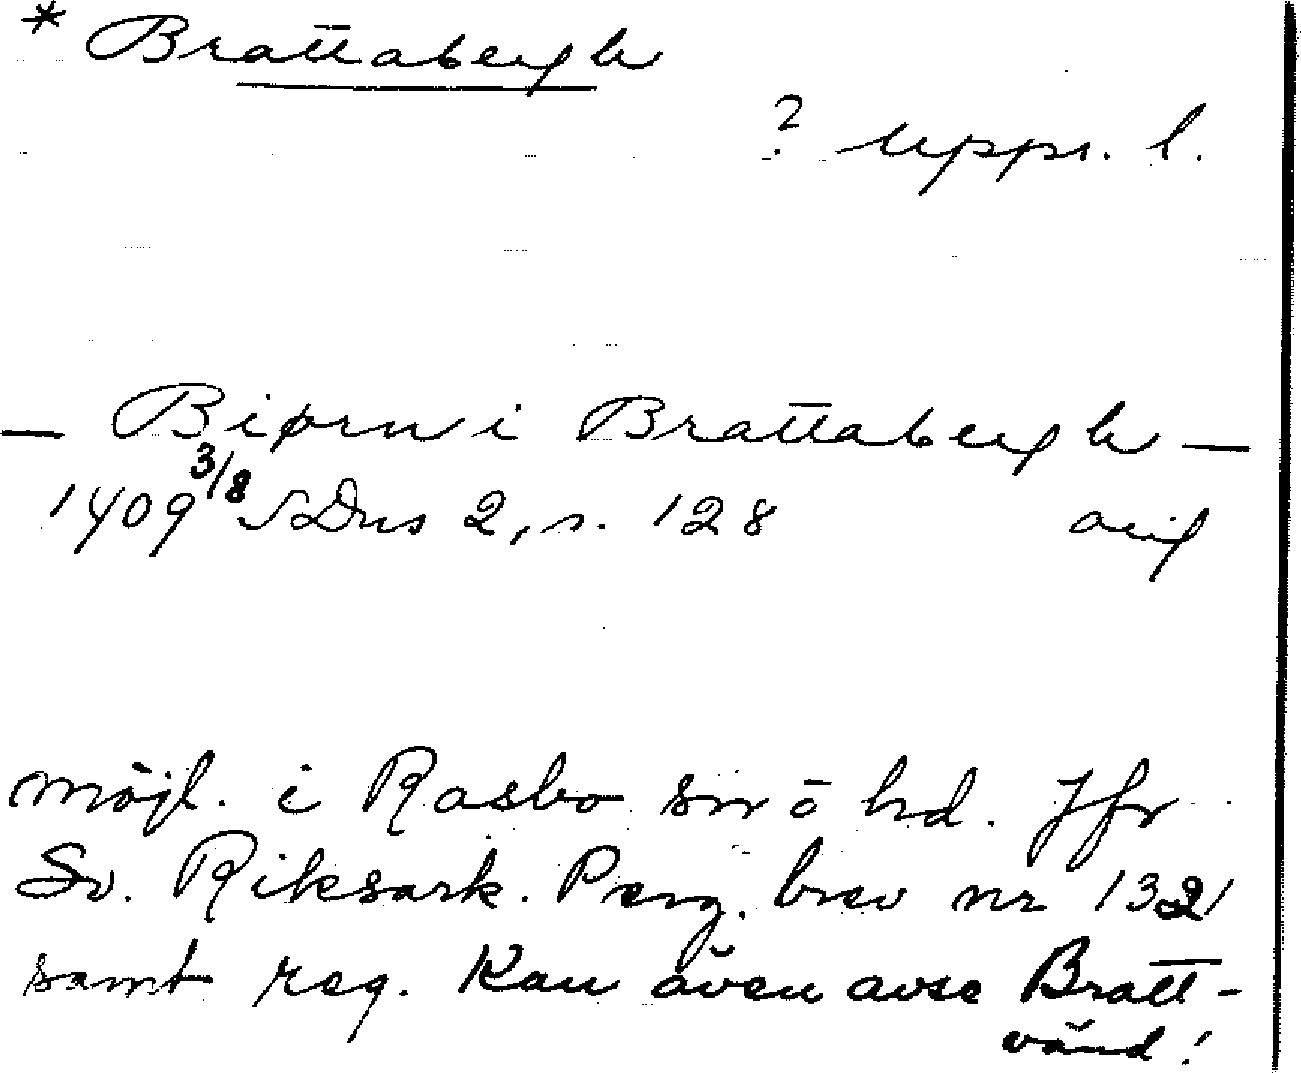 * Brattabergh
? Uppr. l.
— Biørn i Brattabergh —
1409 3/8 SDns 2, s. 128 orig
möjl. i Rasbo sn o hd. Jfr
Sv. Riksark. Perg. brev nr 1321
samt reg. Kan även avse Bratt-
vänd!